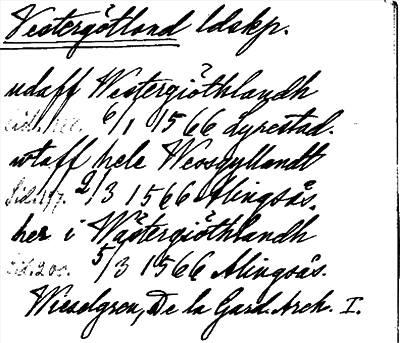 Vestergötland ldskp.
udaff Westergiöthlandh
Sid. 6/1 1566 Lyrestad.
utaff hele Wessgyllandt
Sid. 197. 2/3 1566 Alingsås.
her i Wästergiöthlandh
Sid. 200. 5/3 1566 Alingsås.
Wieselgren, De la Gard. Arch. I.